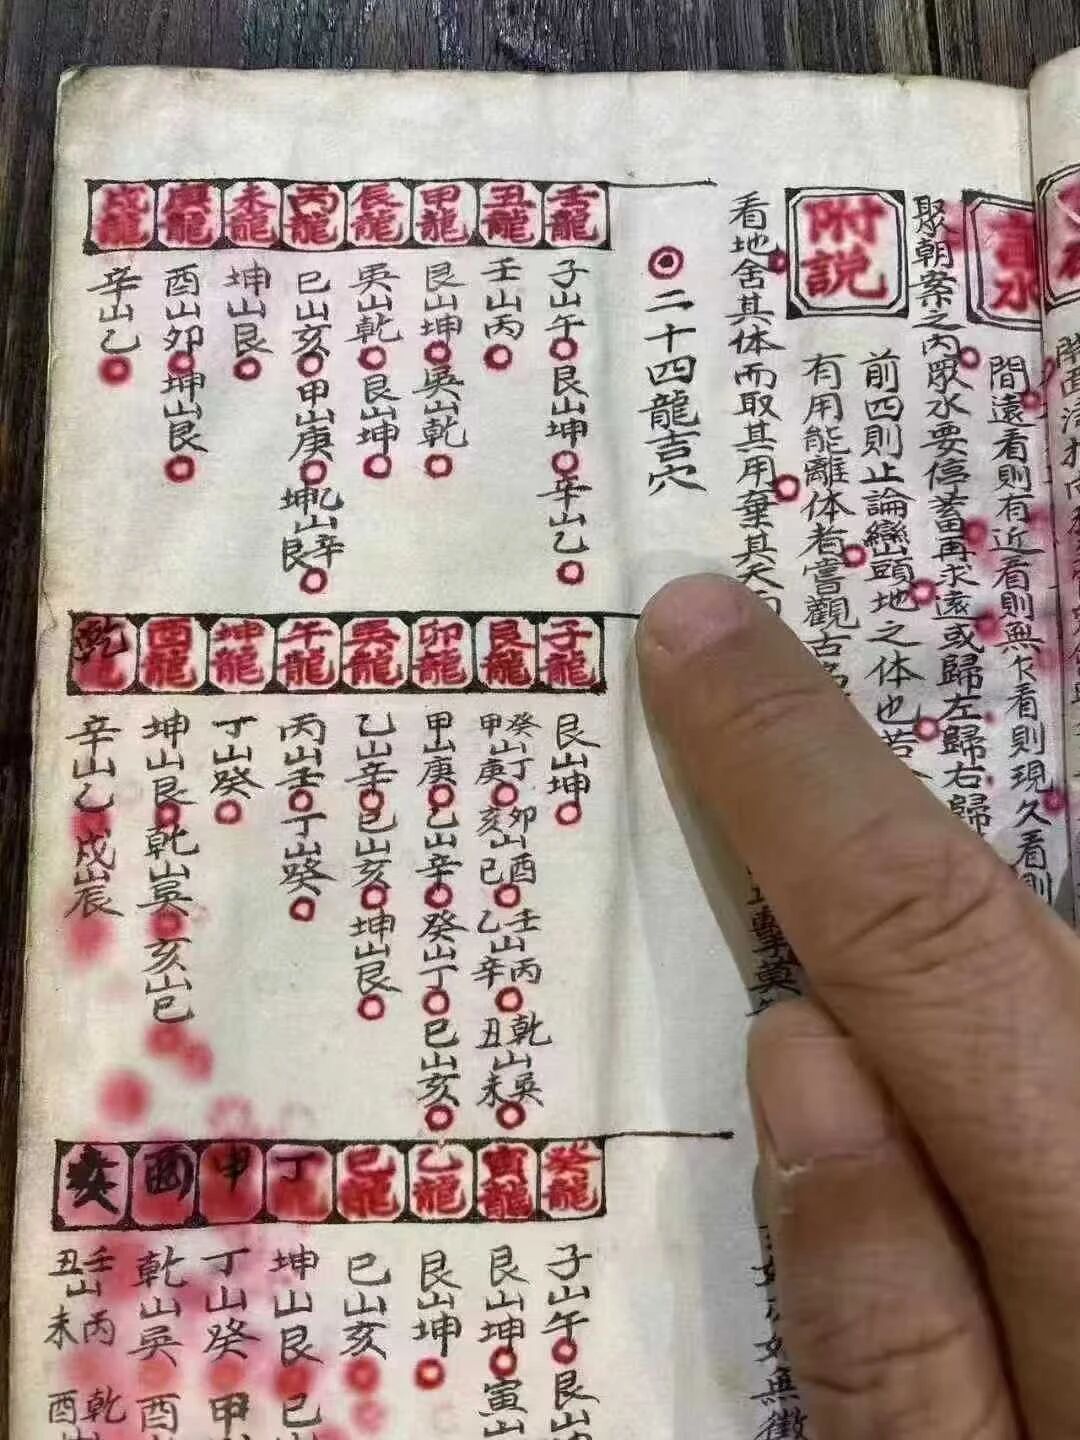 間遠看則有近看則無乍看則現久看則
聚朝案之内眾水要停蓄再求遠或歸左歸右歸
附説
前四則止論巒頭地之体也若
有用能離体者嘗觀古
看地舍其体而取其用棄其大而
二十四龍吉穴
壬龍
子山午艮山坤辛山乙
丑龍
壬山丙
甲龍
艮山坤吳山乾
辰龍
吳山乾艮山坤
丙龍
巳山亥甲山庚乙山辛坤山艮
未龍
坤山艮
庚龍
酉山卯坤山艮
戌龍
辛山乙
子龍
艮山坤
艮龍
癸山丁甲山庚卯山酉亥山巳壬山丙乙山辛乾山吳丑山未
卯龍
甲山庚乙山辛癸山丁巳山亥
吳龍
乙山辛巳山亥坤山艮
午龍
丙山壬丁山癸
坤龍
丁山癸
酉龍
坤山艮乾山吳亥山巳
乾龍
辛山乙戌山辰
癸龍
子山午艮山
寅龍
艮山坤寅山
乙龍
艮山坤
巳龍
巳山亥
丁龍
坤山艮巳
申
丁山癸甲
酉
乾山吳酉
亥
壬山丙丑山未乾酉